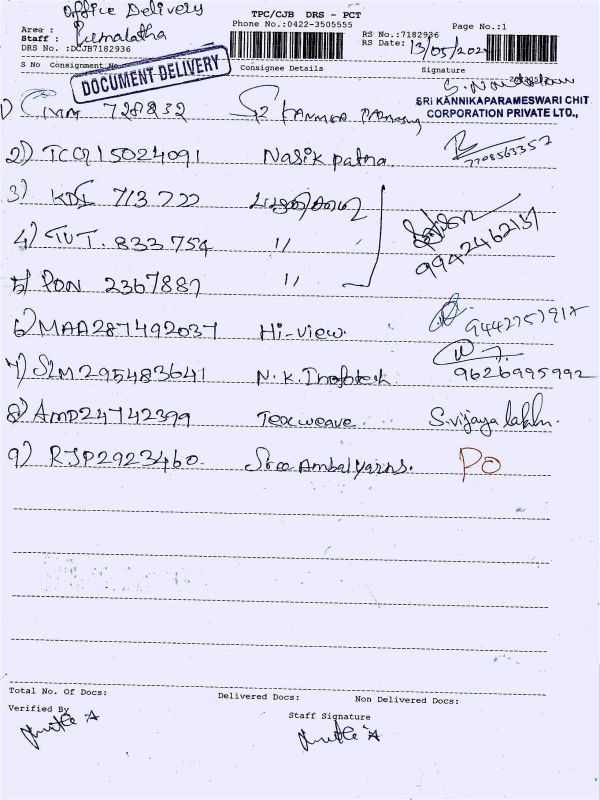 office Delivery
TPC/CJB DRS - PCT
Phone No.:0422-3505555
Page No.:1
Area :
Staff :
RS No.:7182936
RS Date: 13/05/202
DRS No. :DCJB7182936
S No Consignment No Consignee Details Signature
DOCUMENT DELIVERY
SRI KANNIKAPARAMESWARI CHIT
CORPORATION PRIVATE LTD.,
1) 728832
2) TCC915024091 Nasik patna 7708563352
3) KDI 713722
4) TUT. 833754 "
9942462137
5) PON 2367887 "
6) MAA287492037 Hi-view.
7) SLM295483641 N.K. 9626995992
8) AMD24742399 Tex weave. S.vijaya lakhm.
9) RJP2923460. Sree Ambal yarns. PO
Total No. Of Docs: Delivered Docs: Non Delivered Docs:
Verified By
Staff Signature